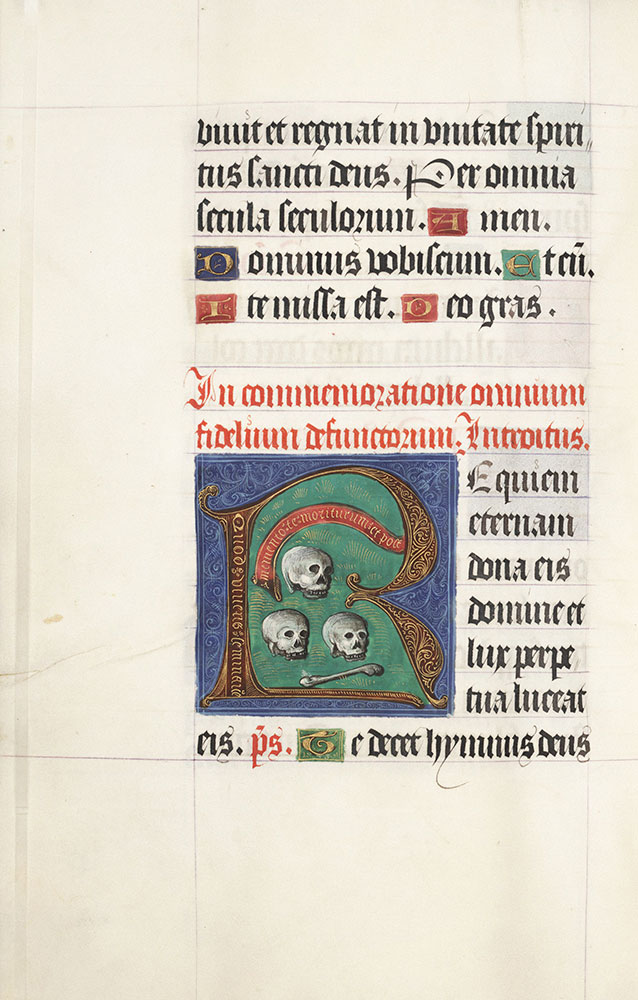 viuit et regnat in vnitate spiri
tus sancti deus. Per omnia
secula seculorum. Amen.
Dominus vobiscum. Et cū.
Ite missa est. Deo gras.
In commemoratione omnium
fidelium defunctorum. Introitus.
memento te moriturum et post
Requiem
eternam
dona eis
domine et
lux perpe
tua luceat
eis. ps. Te decet hymnus deus